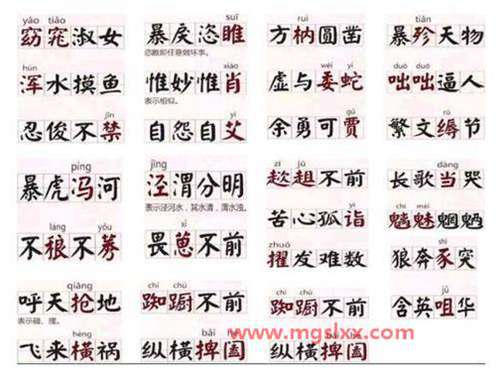 yǎo tiǎo
窈窕淑女
hún
浑水摸鱼
jīn
忍俊不禁
píng
暴虎冯河
láng yǒu
不稂不莠
qiāng
呼天抢地
表示碰、撞。
hèng
飞来横祸
suī
暴戾恣睢
恣睢即任意做坏事。
xiào
惟妙惟肖
表示相似。
yì
自怨自艾
jīng
泾渭分明
表示泾河水,其水清,渭水浊。
xǐ
畏葸不前
chí chú
踟蹰不前
bǎi hé
纵横捭阖
ruì
方枘圆凿
wēi yí
虚与委蛇
gǔ
余勇可贾
zī jū
趑趄不前
yì
苦心孤诣
zhuó
擢发难数
chí chú
踟蹰不前
纵横捭阖
tiǎn
暴殄天物
duō duō
咄咄逼人
rù
繁文缛节
dàng
长歌当哭
魑魅魍魉
shǐ
狼奔豕突
jǔ
含英咀华
www.mgslxx.com